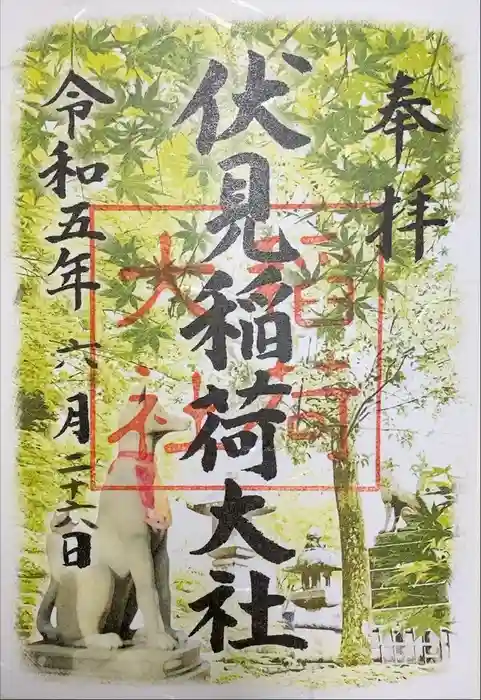 奉拝
伏見稲荷大社
令和五年六月二十六日
稲荷
大社